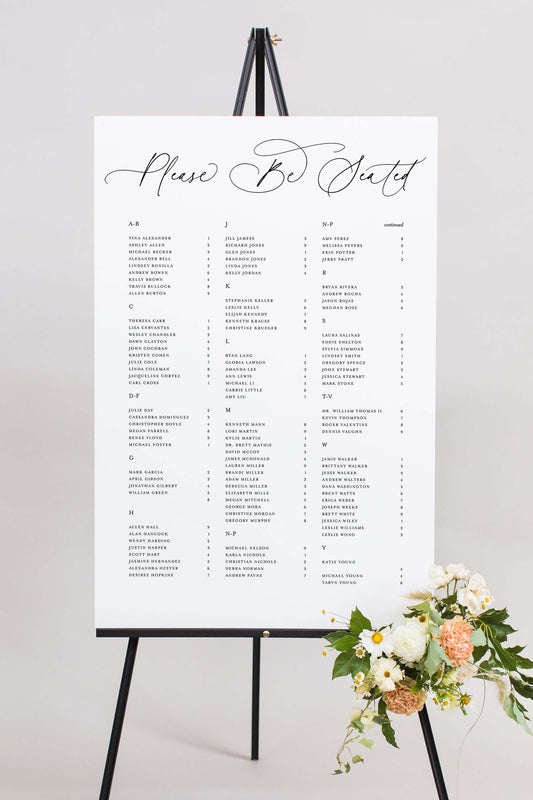 Please Be Seated
A-B
TINA ALEXANDER 1
ASHLEY ALLEN 2
MICHAEL BECKER 3
ALEXANDER BELL 4
LINDSEY BONILLA 5
ANDREW BOWEN 6
KELLY BROWN 4
TRAVIS BULLOCK 8
ALLEN BURTON 9
C
THERESA CARR 1
LISA CERVANTES 2
WESLEY CHANDLER 3
DAWN CLAYTON 4
JOHN COCHRAN 5
KRISTEN COHEN 6
JULIE COLE 7
LINDA COLEMAN 8
JACQUELINE CORTEZ 9
CARL CROSS 1
D-F
JULIE DAY 2
CASSANDRA DOMINGUEZ 3
CHRISTOPHER DOYLE 4
MEGAN FARRELL 8
RENEE FLOYD 9
MICHAEL FOSTER 1
G
MARK GARCIA 2
APRIL GIBSON 3
JONATHAN GILBERT 4
WILLIAM GREEN 5
H
ALLEN HALL 9
ALAN HANCOCK 1
WENDY HARDING 2
JUSTIN HARPER 3
SCOTT HART 4
JASMINE HERNANDEZ 5
ALEXANDRA HESTER 6
DESIREE HOPKINS 7
J
JILL JAMESE 3
RICHARD JONES 9
GLEN JONES 1
BRANDON JONES 2
LINDA JONES 3
KELLY JORDAN 4
K
STEPHANIE KELLER 5
LESLIE KELLY 6
ELIJAH KENNEDY 7
KENNETH KRAUSE 8
CHRISTINE KRUEGER 9
L
RYAN LANG 1
GLORIA LAWSON 2
AMANDA LEE 3
ANN LEWIS 4
MICHAEL LI 5
CARRIE LITTLE 6
AMY LIU 7
M
KENNETH MANN 8
LORI MARTIN 9
KYLIE MARTIN 1
DR. BRETT MATHIE 2
DAVID MCCOY 3
JAMES MCDONALD 4
LAUREN MILLER 9
BRANDI MILLER 1
ADAM MILLER 2
REBECCA MILLER 3
ELIZABETH MILLS 4
MEGAN MITCHELL 5
GEORGE MORA 6
CHRISTINE MORGAN 7
GREGORY MURPHY 8
N-P
MICHAEL NELSON 9
KARLA NICHOLS 1
CHRISTIAN NICHOLS 2
DEBRA NORMAN 3
ANDREW PAYNE 7
N-P continued
AMY PEREZ 8
MELISSA PETERS 9
ERIN POTTER 1
JERRY PRATT 2
R
BRYAN RIVERA 3
ANDREW ROCHA 4
JASON ROJAS 5
MEGHAN ROSE 6
S
LAURA SALINAS 7
EDDIE SHELTON 8
SYLVIA SIMMONS 9
LINDSEY SMITH 1
GREGORY SPENCE 2
JOHN STEWART 3
JESSICA STEWART 4
MARK STONE 5
T-V
MR. WILLIAM THOMAS II 6
KEVIN THOMPSON 7
ROGER VALENTINE 8
DENNIS VAUGHN 9
W
JAMIE WALKER 1
BRITTANY WALKER 2
JESSE WALKER 3
ANDREW WALTERS 4
DANA WASHINGTON 5
BRENT WATTS 6
ERICA WEBER 7
JOSEPH WEEKS 8
BRETT WHITE 9
JESSICA WILEY 1
LESLIE WILLIAMS 2
LESLIE WONG 3
Y
KATIE YOUNG
MICHAEL YOUNG 4
TARYN YOUNG 4